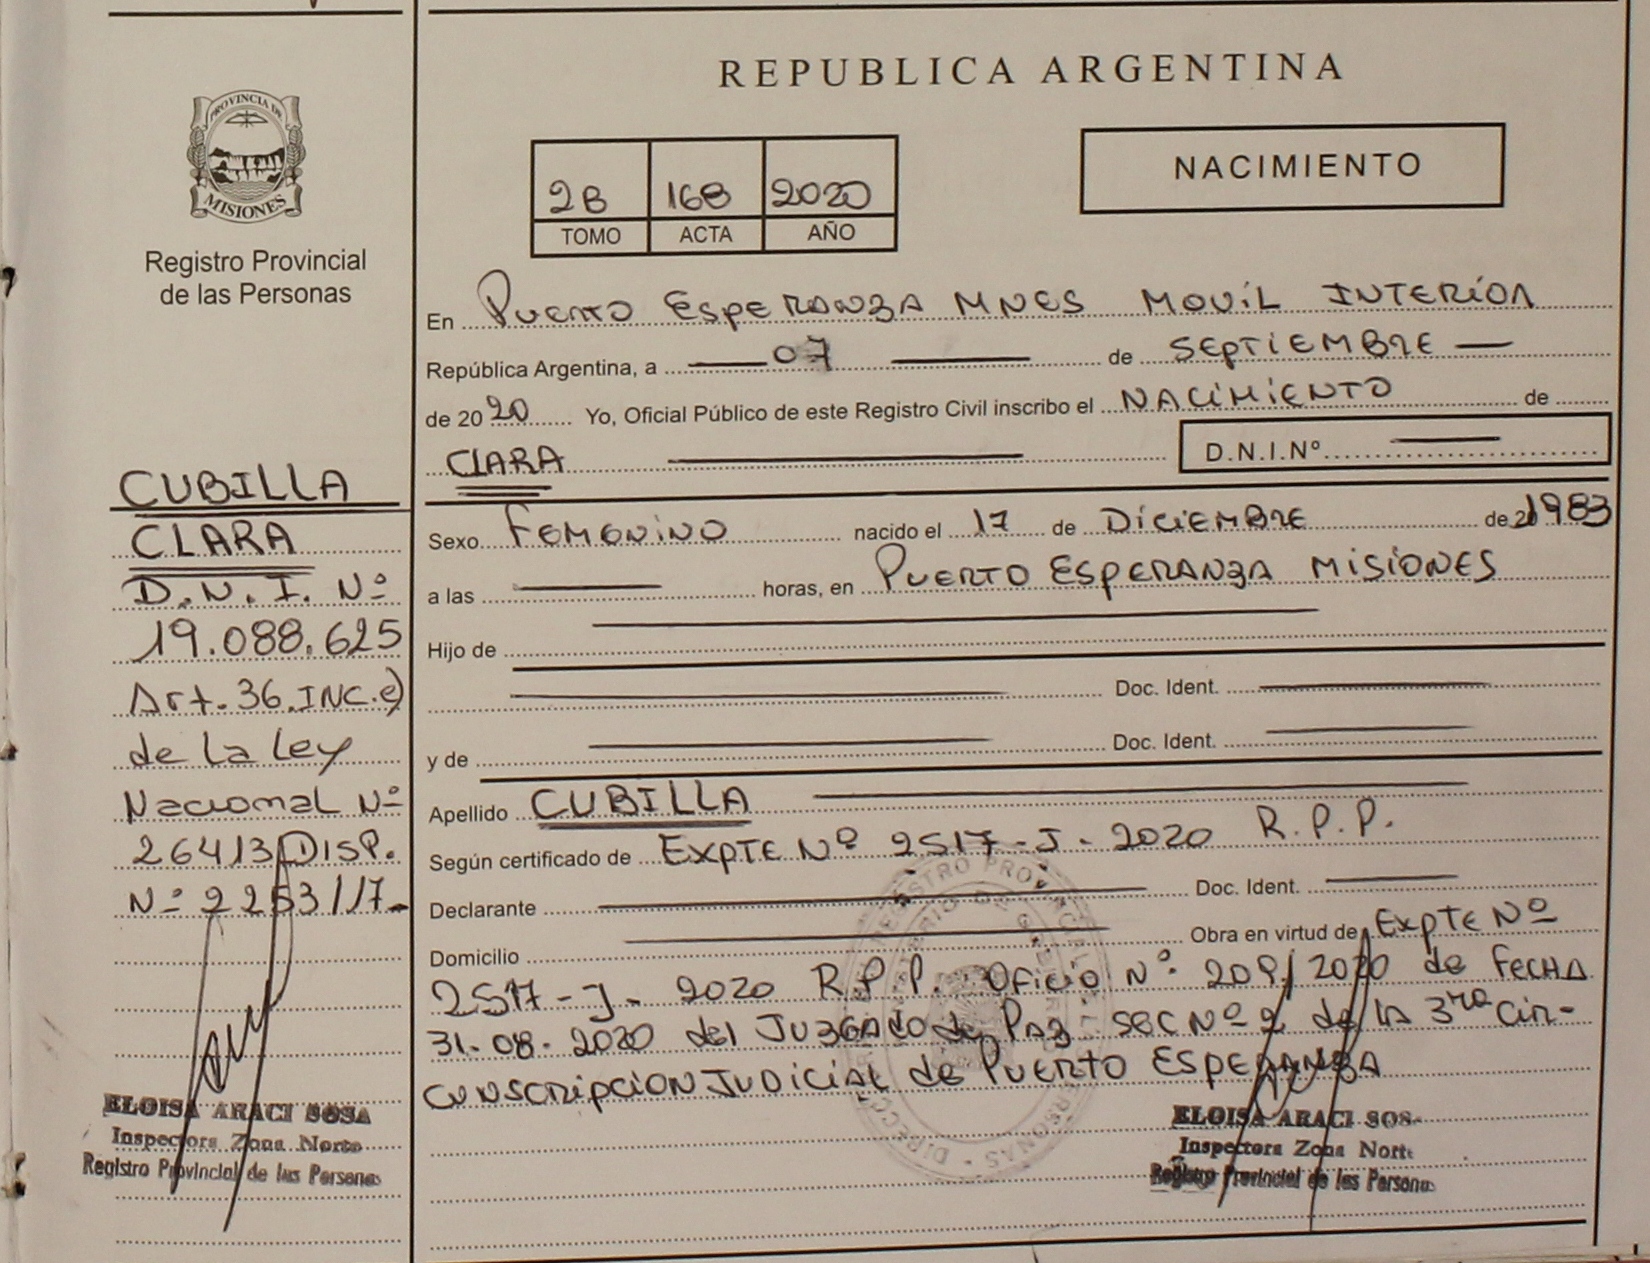 REPUBLICA ARGENTINA
PROVINCIA DE
MISIONES
Registro Provincial
de las Personas
2B 168 2020
TOMO ACTA AÑO
NACIMIENTO
En PUERTO ESPERANZA MNES MOVIL INTERIOR
República Argentina, a 07 de SEPTIEMBRE
de 2020 Yo, Oficial Público de este Registro Civil inscribo el NACIMIENTO de
CLARA D.N.I.Nº
Sexo FEMENINO nacido el 17 de DICIEMBRE de 1983
a las horas, en PUERTO ESPERANZA MISIONES
Hijo de
Doc. Ident.
y de Doc. Ident.
Apellido CUBILLA
Según certificado de EXPTE Nº 2517-J-2020 R.P.P.
Declarante Doc. Ident.
Domicilio Obra en virtud de EXPTE Nº
2517-J-2020 R.P.P. OFICIO Nº 209/2020 de FECHA
31-08-2020 del JUZGADO de PAZ SEC Nº 2 de LA 3ra CIR-
CUNSCRIPCION JUDICIAL de PUERTO ESPERANZA
ELOISA ARACI SOS
Inspectora Zona Norte
Registro Provincial de las Persona
CUBILLA
CLARA
D.N.I. Nº
19.088.625
Art. 36 INC.e)
de La Ley
Nacional Nº
26413 DISP.
Nº 2253/17.
ELOISA ARACI SOSA
Inspectora Zona Norte
Registro Provincial de las Personas